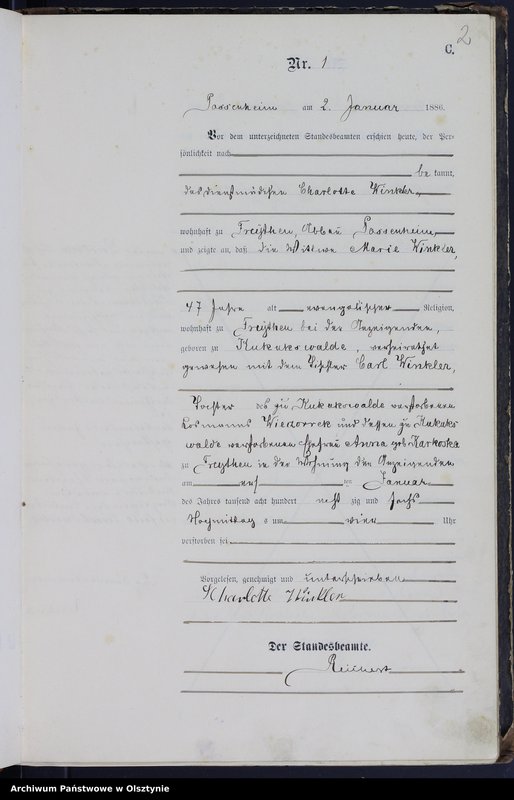 2
C.
Nr. 1
Passenheim am 2. Januar 1886.
Vor dem unterzeichneten Standesbeamten erschien heute, der Per-
sönlichkeit nach
be kannt,
das Dienstmädchen Charlotte Winkler,
wohnhaft zu Freythen, Abbau Passenheim
und zeigte an, daß die Wittwe Marie Winkler,
47 Jahre alt evangelischer Religion,
wohnhaft zu Freythen bei der Anzeigenden,
geboren zu Kukukswalde, verheirathet
gewesen mit dem Carl Winkler,
Tochter des zu Kukukswalde verstorbenen
Losmanns und dessen zu Kukuks
walde verstorbenen Ehefrau Anna geb
zu Freythen in der Wohnung der Anzeigenden
am den Januar
des Jahres tausend acht hundert acht zig und sechs
Nachmittag s um vier Uhr
verstorben sei
Vorgelesen, genehmigt und unterschrieben
Charlotte Winkler
Der Standesbeamte.
Reichert
Archiwum Państwowe w Olsztynie